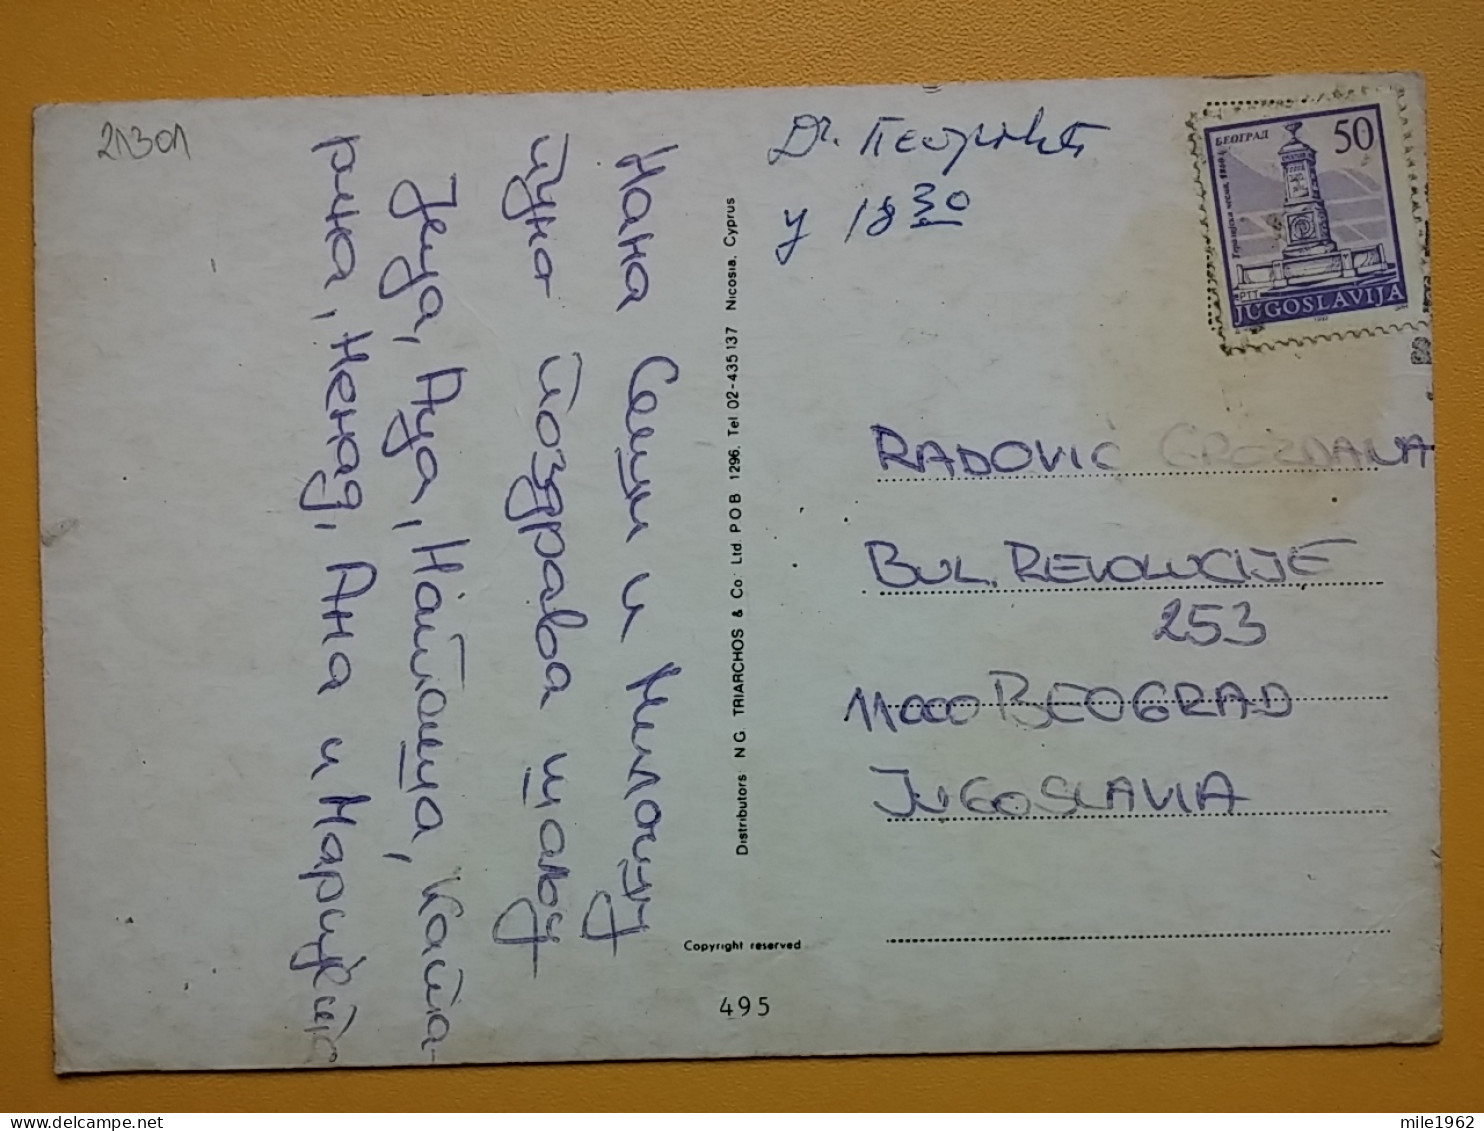 21301
Нана Сеши и Милошу
пуно поздрава шаљу
Јеца, Аца, Наташа, Ката-
рина, Ненад, Ана и Марија
Dr.
у 18 30
БЕОГРАД
50
PTT
JUGOSLAVIJA
RADOVIC GROZDANA
BUL. REVOLUCIJE
253
11000 BEOGRAD
JUGOSLAVIA
Distributors: N G. TRIARCHOS & Co. Ltd. P O B 1296, Tel 02-435137 Nicosia, Cyprus
Copyright reserved
495
mile1962